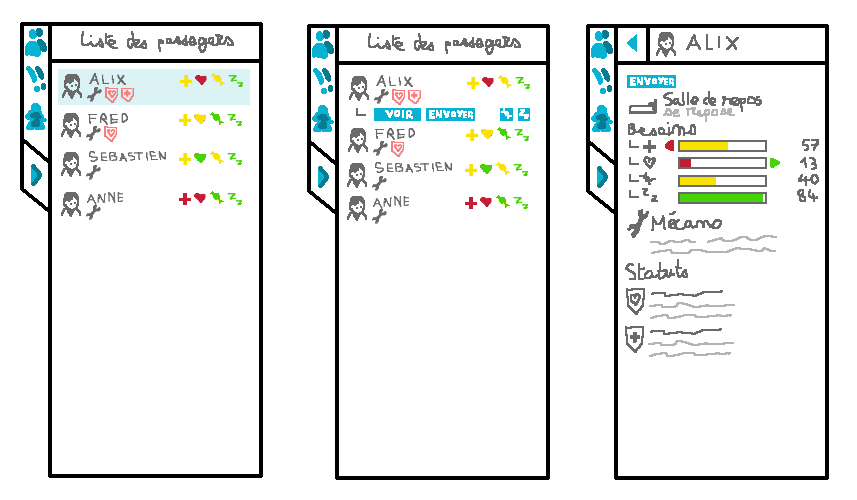 Liste des passagers
ALIX
FRED
SEBASTIEN
ANNE
Liste des passagers
ALIX
VOIR ENVOYER
FRED
SEBASTIEN
ANNE
ALIX
ENVOYER
Salle de repos
se repose
Besoins
57
13
40
84
Mécano
Statuts